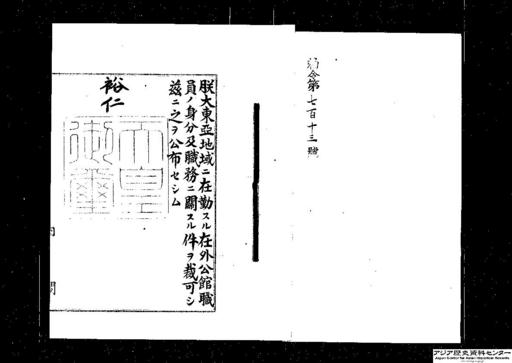 勅令第七百十三號
朕大東亞地域ニ在勤スル在外公館職
員ノ身分及職務ニ關スル件ヲ裁可シ
茲ニ之ヲ公布セシム
裕仁
天皇
御璽
内
閣
アジア歴史資料センター
Japan Center for Asian Historical Records